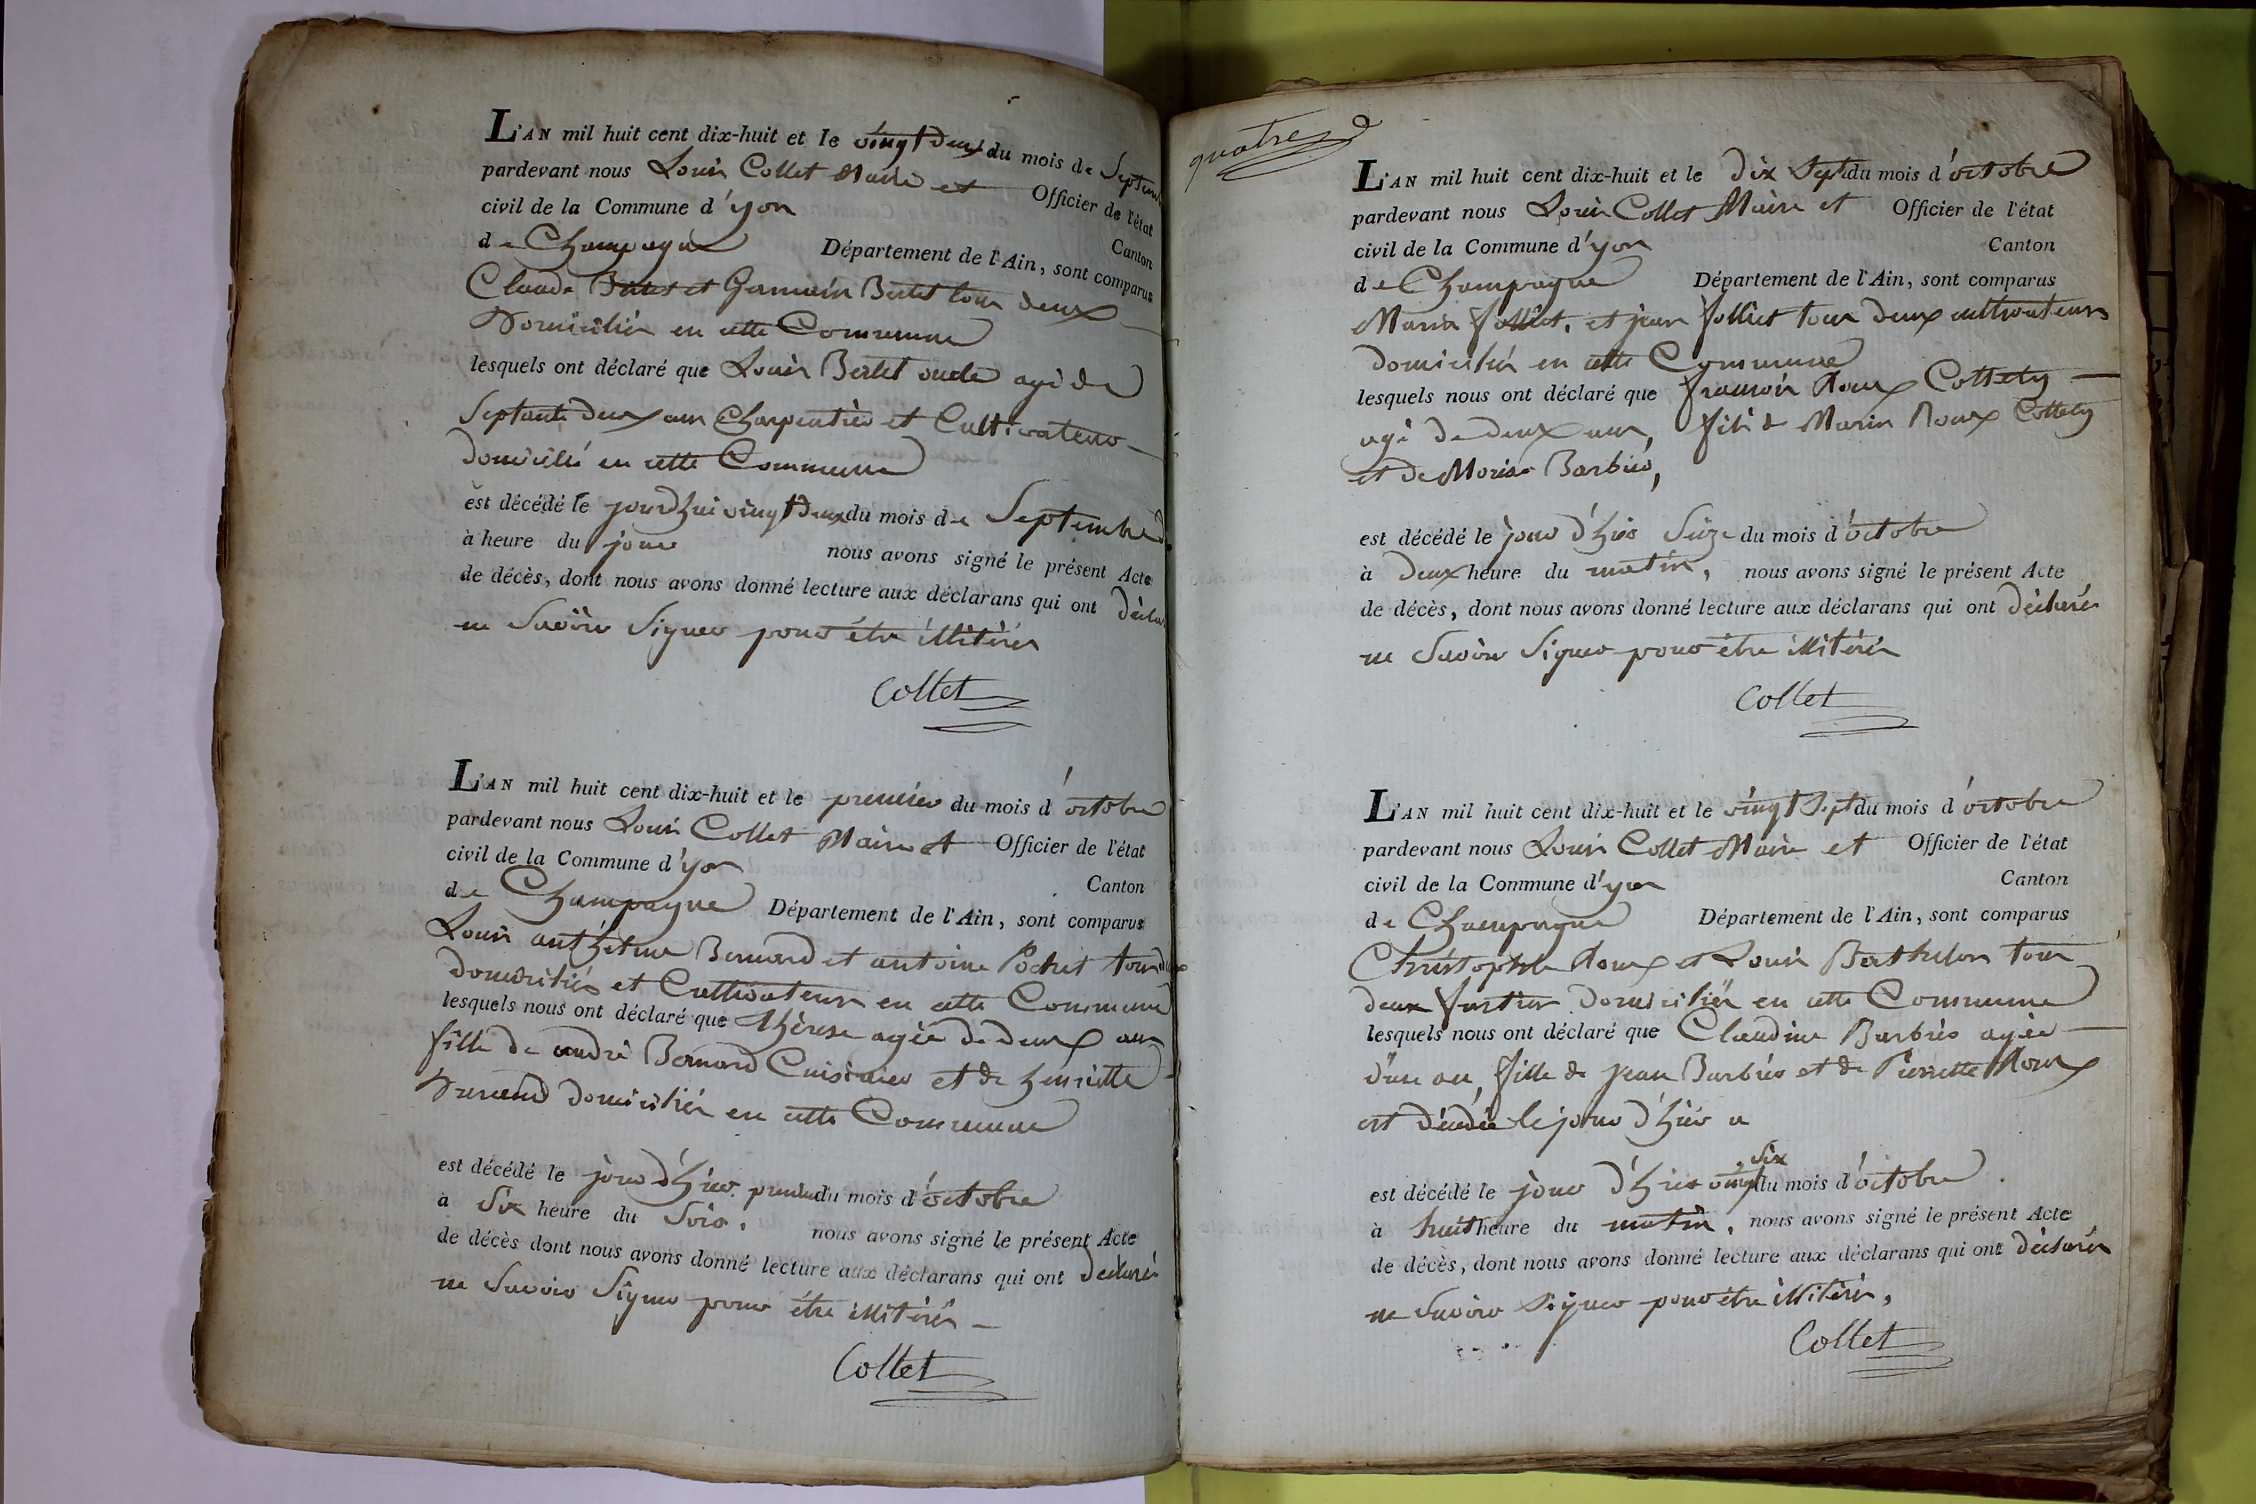 L'AN mil huit cent dix-huit et le vingt deux du mois de Septemb
pardevant nous Louis Collet Maire et Officier de l'état
civil de la Commune d'yon Canton
de Champagne Département de l'Ain, sont comparus
Claude Bertet et Germain Bertet tous deux
Domiciliés en cette Commune
lesquels ont déclaré que Louis Bertet oncle agé de
Septante deux ans Charpentier et Cultivateur
domicilié en cette Commune
est décédé le jourdhui vingt deux du mois de Septembre
à heure du jour nous avons signé le présent Acte
de décès, dont nous avons donné lecture aux déclarans qui ont déclar
ne Savoir Signer pour être illitérés
Collet
L'AN mil huit cent dix-huit et le premier du mois d'octobre
pardevant nous Louis Collet Maire et Officier de l'état
civil de la Commune d'yon Canton
de Champagne Département de l'Ain, sont comparus
Louis anthelme Bernard et antoine Pochet tous deux
domiciliés et Cultivateurs en cette Commune
lesquels nous ont déclaré que thérese agée de deux ans
fille de andré Bernard Cuisinier et de henriette
Durand domiciliés en cette Commune
est décédé le jour d'hier premier du mois d'octobre
à Six heure du Soir, nous avons signé le présent Acte
de décès dont nous avons donné lecture aux déclarans qui ont déclarés
ne Savoir Signer pour être illitérés
Collet
quatre
L'AN mil huit cent dix-huit et le dix Sept du mois d'octobre
pardevant nous Louis Collet Maire et Officier de l'état
civil de la Commune d'yon Canton
de Champagne Département de l'Ain, sont comparus
Marin Jolliet, et jean Jolliet tous deux cultivateurs
domiciliés en cette Commune
lesquels nous ont déclaré que françois Roux Collety
agé de deux ans, fils de Marin Roux Collety
et de Marie Barbier,
est décédé le jour d'hier Seize du mois d'octobre
à deux heure du matin, nous avons signé le présent Acte
de décès, dont nous avons donné lecture aux déclarans qui ont déclarés
ne Savoir Signer pour être illitérés
Collet
L'AN mil huit cent dix-huit et le vingt Sept du mois d'octobre
pardevant nous Louis Collet Maire et Officier de l'état
civil de la Commune d'yon Canton
de Champagne Département de l'Ain, sont comparus
Christophle Roux et Louis Berthelon tous
deux fustier domiciliés en cette Commune
lesquels nous ont déclaré que Claudine Barbier agée
d'un an, fille de jean Barbier et de Pierrette Roux
est décédée le jour d'hier a
six
est décédé le jour d'hier vingt du mois d'octobre
à huit heure du matin, nous avons signé le présent Acte
de décès, dont nous avons donné lecture aux déclarans qui ont déclarés
ne Savoir Signer pour être illitérés,
Collet